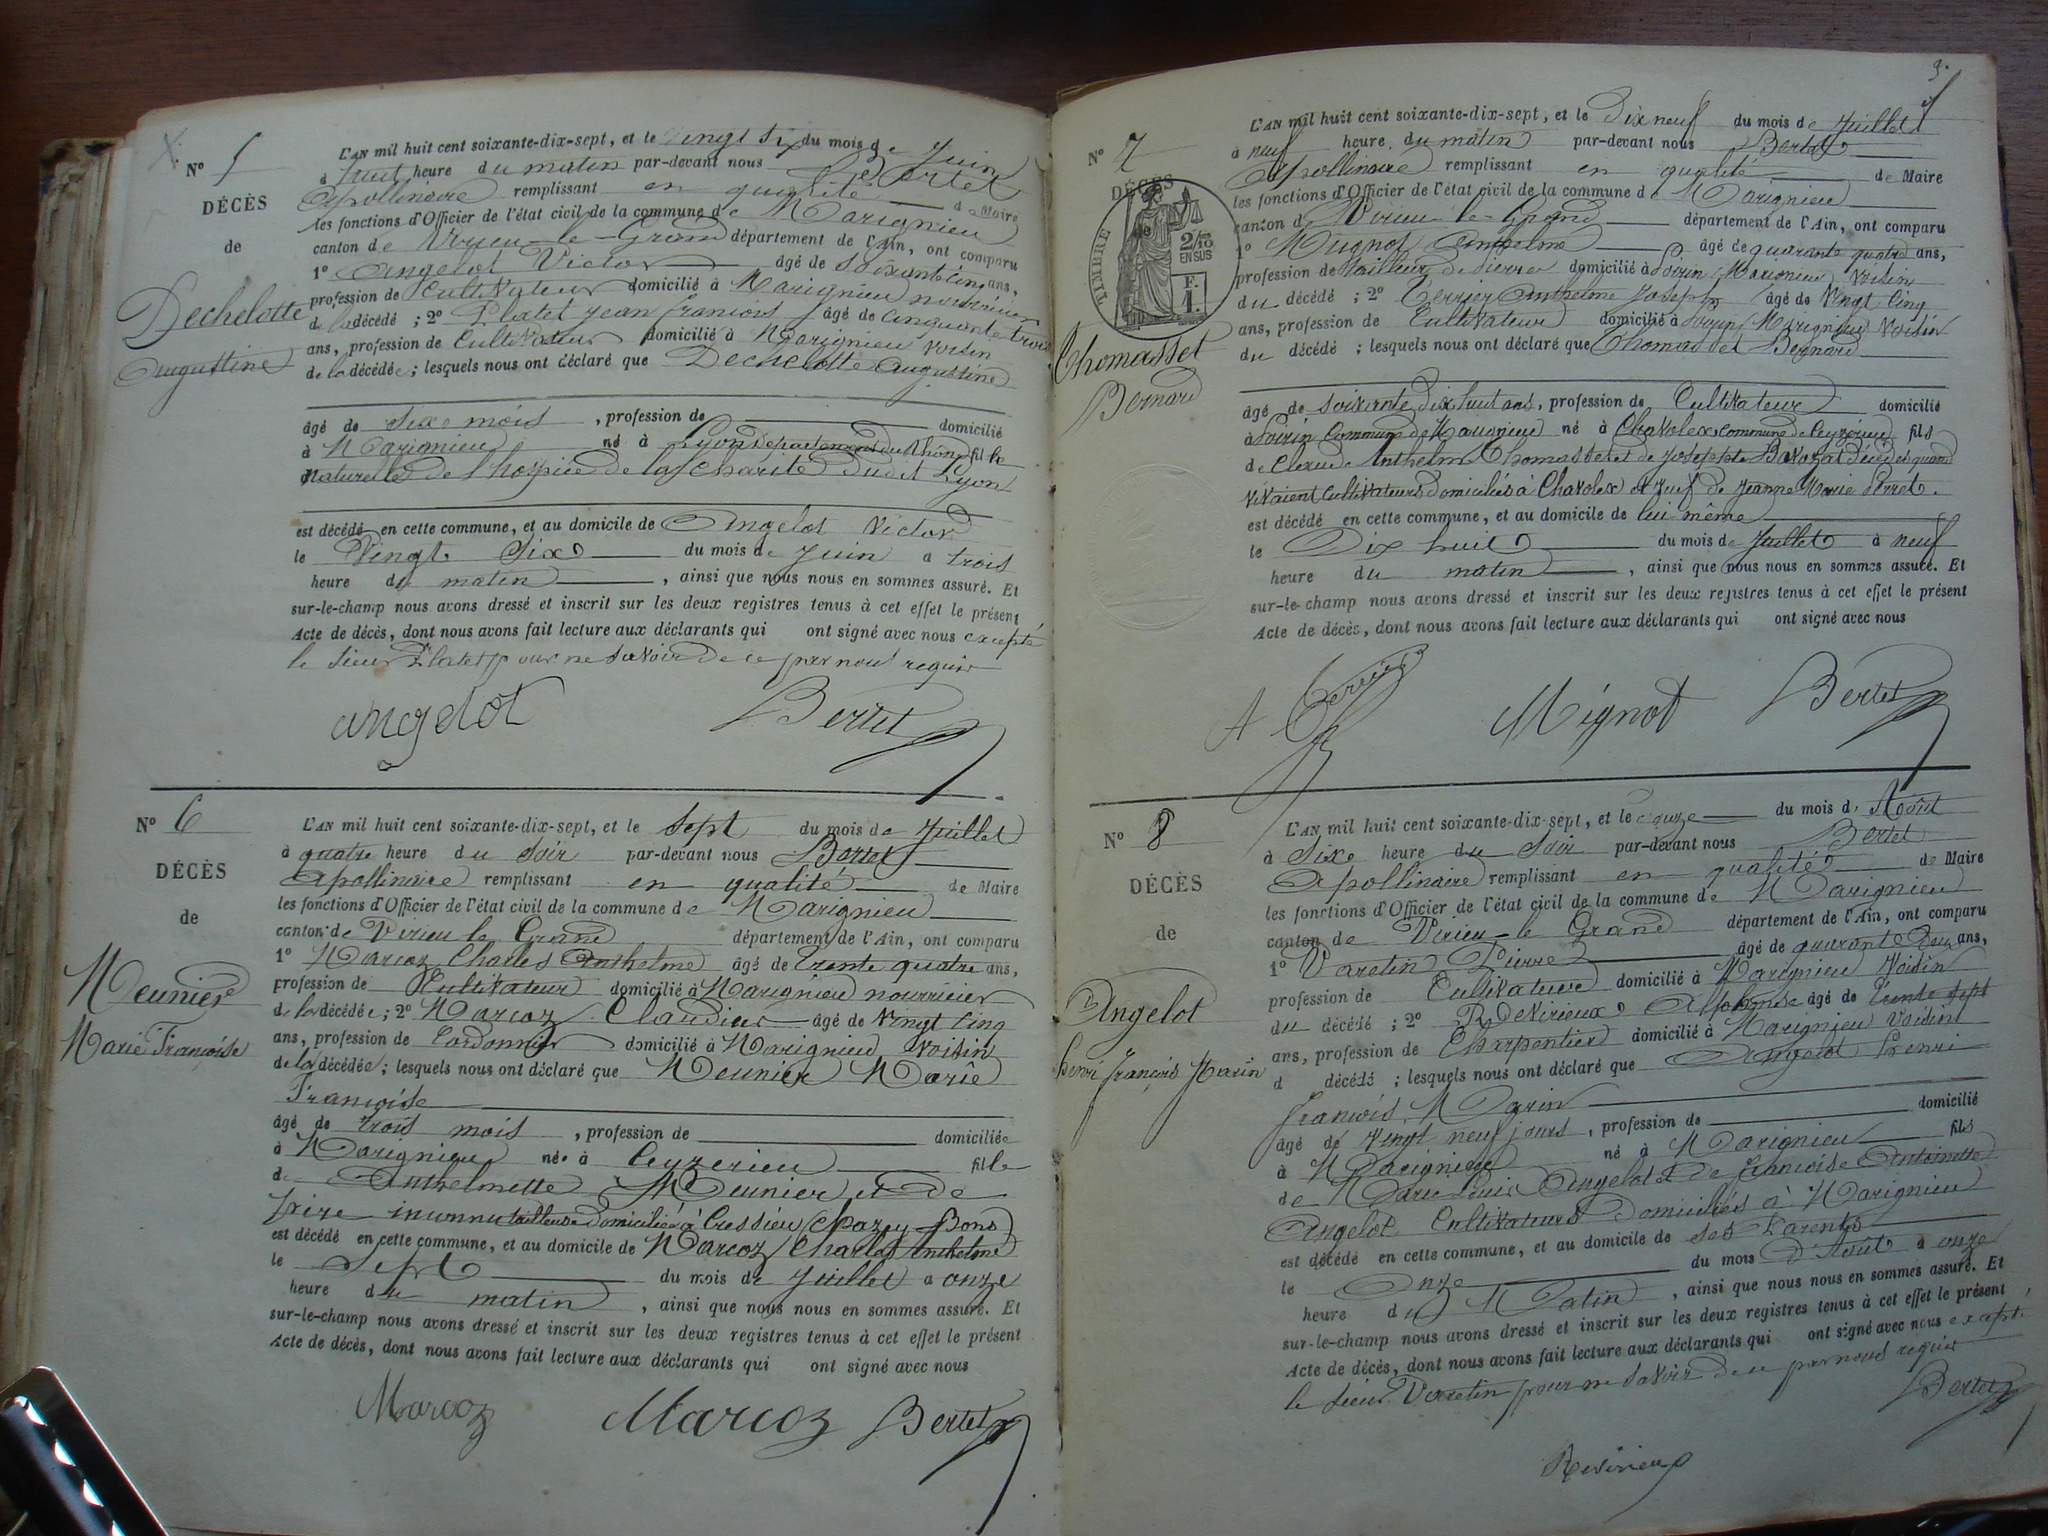 N° 5
DÉCÈS
de
Dechelotte
Augustine
L'AN mil huit cent soixante-dix-sept, et le vingt six du mois de Juin
à huit heure du matin par-devant nous Bertet
Apollinaire remplissant en qualité de Maire
les fonctions d'Officier de l'état civil de la commune de Marignieu
canton de Virieu-le-Grand département de l'Ain, ont comparu
1° Angelot Victor âgé de soixante cinq ans,
profession de Cultivateur domicilié à Marignieu nourricier
de la décédé ; 2° Platet Jean François âgé de cinquante trois
ans, profession de Cultivateur domicilié à Marignieu voisin
de la décédée ; lesquels nous ont déclaré que Dechelotte Augustine
âgé de six mois , profession de domicilié
à Marignieu né à Lyon département du Rhône fille
naturelle de l'hospice de la Charité dudit Lyon
est décédé en cette commune, et au domicile de Angelot Victor
le Vingt Six du mois de Juin à trois
heure du matin , ainsi que nous nous en sommes assuré. Et
sur-le-champ nous avons dressé et inscrit sur les deux registres tenus à cet effet le présent
Acte de décès, dont nous avons fait lecture aux déclarants qui ont signé avec nous excepté
le sieur Platet pour ne savoir de ce par nous requis
Angelot Bertet
N° 6
DÉCÈS
de
Meunier
Marie Françoise
L'AN mil huit cent soixante-dix-sept, et le sept du mois de Juillet
à quatre heure du soir par-devant nous Bertet
Apollinaire remplissant en qualité de Maire
les fonctions d'Officier de l'état civil de la commune de Marignieu
canton de Virieu le Grand département de l'Ain, ont comparu
1° Marcoz Charles Anthelme âgé de trente quatre ans,
profession de Cultivateur domicilié à Marignieu nourricier
de la décédée ; 2° Marcoz Claudius âgé de vingt cinq
ans, profession de Cordonnier domicilié à Marignieu voisin
de la décédée ; lesquels nous ont déclaré que Meunier Marie
Françoise
âgé de trois mois , profession de domiciliée
à Marignieu née à Ceyzerieu fille
de Anthelmette Meunier et de
père inconnu tailleuse domiciliée à Cressieu Chazey-Bons
est décédé en cette commune, et au domicile de Marcoz Charles Anthelme
le Sept du mois de Juillet à onze
heure du matin , ainsi que nous nous en sommes assuré. Et
sur-le-champ nous avons dressé et inscrit sur les deux registres tenus à cet effet le présent
Acte de décès, dont nous avons fait lecture aux déclarants qui ont signé avec nous
Marcoz Marcoz Bertet
3.
N° 7
DÉCÈS
de
TIMBRE
2/10
EN SUS
F.
1.
Thomasset
Bernard
L'AN mil huit cent soixante-dix-sept, et le Dix neuf du mois de Juillet
à neuf heure du matin par-devant nous Bertet
Apollinaire remplissant en qualité de Maire
les fonctions d'Officier de l'état civil de la commune de Marignieu
canton d Virieu-le-Grand département de l'Ain, ont comparu
1° Mignot Anthelme âgé de quarante quatre ans,
profession de tailleur de pierre domicilié à Poirin Marignieu voisin
du décédé ; 2° Terrier Anthelme Joseph âgé de Vingt Cinq
ans, profession de Cultivateur domicilié à Poirin Marignieu voisin
du décédé ; lesquels nous ont déclaré que Thomasset Bernard
âgé de soixante dix huit ans, profession de Cultivateur domicilié
à Poirin Commune de Marignieu né à Chavolex commune de Ceyzerieu fils
de Claude Anthelme Thomasset et de Josephte décédés quand
vivaient cultivateurs domiciliés à Chavolex et veuf de Jeanne Marie Perret.
est décédé en cette commune, et au domicile de lui-même
le Dix huit du mois de Juillet à neuf
heure du matin , ainsi que nous nous en sommes assuré. Et
sur-le-champ nous avons dressé et inscrit sur les deux registres tenus à cet effet le présent
Acte de décès, dont nous avons fait lecture aux déclarants qui ont signé avec nous
A Terrier Mignot Bertet
N° 8
DÉCÈS
de
Angelot
henri françois Marin
L'AN mil huit cent soixante-dix-sept, et le onze du mois d'Août
à Six heure du Soir par-devant nous Bertet
Apollinaire remplissant en qualité de Maire
les fonctions d'Officier de l'état civil de la commune de Marignieu
canton de Virieu-le Grand département de l'Ain, ont comparu
1° Varetin Pierre âgé de quarante deux ans,
profession de Cultivateur domicilié à Marignieu voisin
du décédé ; 2° Revirieux Alphonse âgé de trente sept
ans, profession de Charpentier domicilié à Marignieu voisin
d décédé ; lesquels nous ont déclaré que Angelot henri
françois Marin
âgé de vingt neuf jours , profession de domicilié
à Marignieu né à Marignieu fils
de Marie Louis Angelot et de Françoise Antoinette
Angelot Cultivateurs domiciliés à Marignieu
est décédé en cette commune, et au domicile de ses Parents
le Onze du mois d'Août à onze
heure du Matin , ainsi que nous nous en sommes assuré. Et
sur-le-champ nous avons dressé et inscrit sur les deux registres tenus à cet effet le présent
Acte de décès, dont nous avons fait lecture aux déclarants qui ont signé avec nous excepté
le sieur Varetin pour ne savoir de ce par nous requis
Bertet
Revirieux